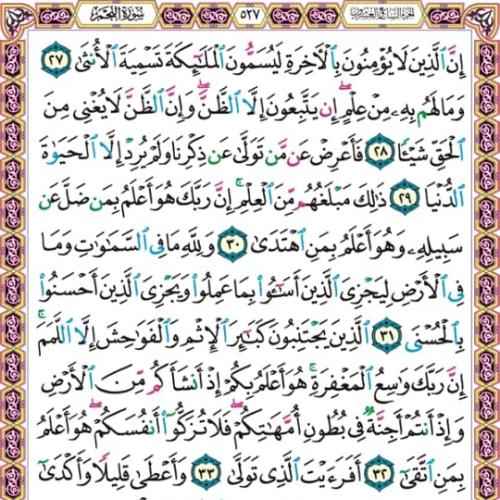 الجزء السابع والعشرون ٥٢٧ سورة النجم
إِنَّ ٱلَّذِينَ لَا يُؤْمِنُونَ بِٱلْأَخِرَةِ لَيُسَمُّونَ ٱلْمَلَٰٓئِكَةَ تَسْمِيَةَ ٱلْأُنثَىٰ ٢٧
وَمَا لَهُم بِهِۦ مِنْ عِلْمٍ إِن يَتَّبِعُونَ إِلَّا ٱلظَّنَّ وَإِنَّ ٱلظَّنَّ لَا يُغْنِى مِنَ
ٱلْحَقِّ شَيْـًٔا ٢٨ فَأَعْرِضْ عَن مَّن تَوَلَّىٰ عَن ذِكْرِنَا وَلَمْ يُرِدْ إِلَّا ٱلْحَيَوٰةَ
ٱلدُّنْيَا ٢٩ ذَٰلِكَ مَبْلَغُهُم مِّنَ ٱلْعِلْمِ إِنَّ رَبَّكَ هُوَ أَعْلَمُ بِمَن ضَلَّ عَن
سَبِيلِهِۦ وَهُوَ أَعْلَمُ بِمَنِ ٱهْتَدَىٰ ٣٠ وَلِلَّهِ مَا فِى ٱلسَّمَٰوَٰتِ وَمَا
فِى ٱلْأَرْضِ لِيَجْزِىَ ٱلَّذِينَ أَسَٰٓـُٔوا۟ بِمَا عَمِلُوا۟ وَيَجْزِىَ ٱلَّذِينَ أَحْسَنُوا۟
بِٱلْحُسْنَى ٣١ ٱلَّذِينَ يَجْتَنِبُونَ كَبَٰٓئِرَ ٱلْإِثْمِ وَٱلْفَوَٰحِشَ إِلَّا ٱللَّمَمَ ۚ
إِنَّ رَبَّكَ وَٰسِعُ ٱلْمَغْفِرَةِ ۚ هُوَ أَعْلَمُ بِكُمْ إِذْ أَنشَأَكُم مِّنَ ٱلْأَرْضِ
وَإِذْ أَنتُمْ أَجِنَّةٌ فِى بُطُونِ أُمَّهَٰتِكُمْ ۖ فَلَا تُزَكُّوٓا۟ أَنفُسَكُمْ ۖ هُوَ أَعْلَمُ
بِمَنِ ٱتَّقَىٰٓ ٣٢ أَفَرَءَيْتَ ٱلَّذِى تَوَلَّىٰ ٣٣ وَأَعْطَىٰ قَلِيلًا وَأَكْدَىٰٓ